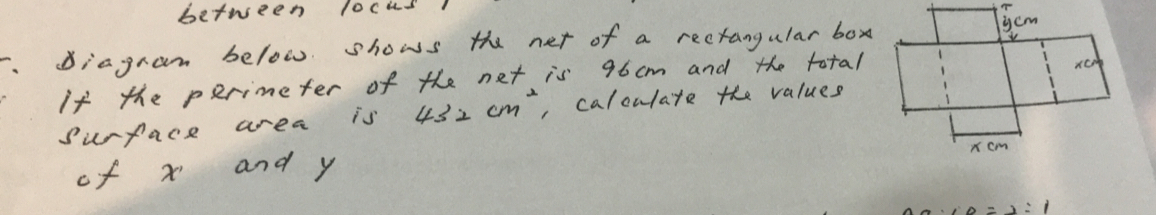 between locus
Diagram below shows the net of a rectangular box
If the perimeter of the net is 96 cm and the total
surface area is 432 cm², calculate the values
of x and y
y cm
x cm
x cm
= 2:1